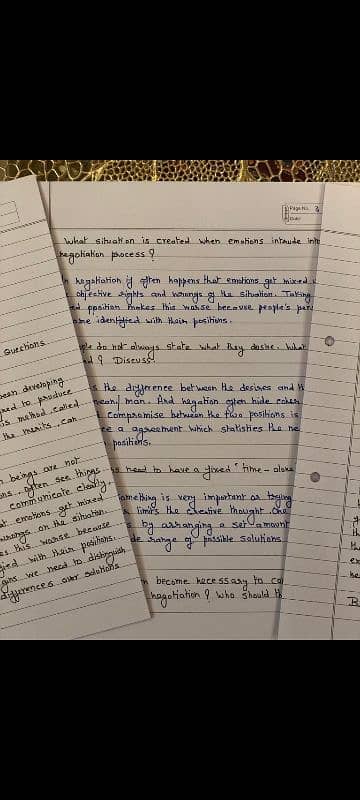 Page No. 3
Date
What situation is created when emotions intrude into
negotiation process ?
negotiation if often happens that emotions get mixed
objective rights and wrongs of the situation. Taking
position makes this worse because people's
identified with their positions.
do not always state what they desire. What
? Discuss
the difference between the desires and
man. And negation often hide
compromise between the two positions is
a agreement which statisties the ne
positions.
need to have a fixed "time -
omething is very important as trying
limits the creative thought. One
by arranging a set amount
range of possible solutions
become necessary to
negotiation ? who should
Questions
been developing
to produce
method called
the merits. Can
beings are not
often see things
communicate clearly.
emotions get mixed
wrongs on the situation.
this worse because
with their positions.
we need to distinguish
differences over solutions